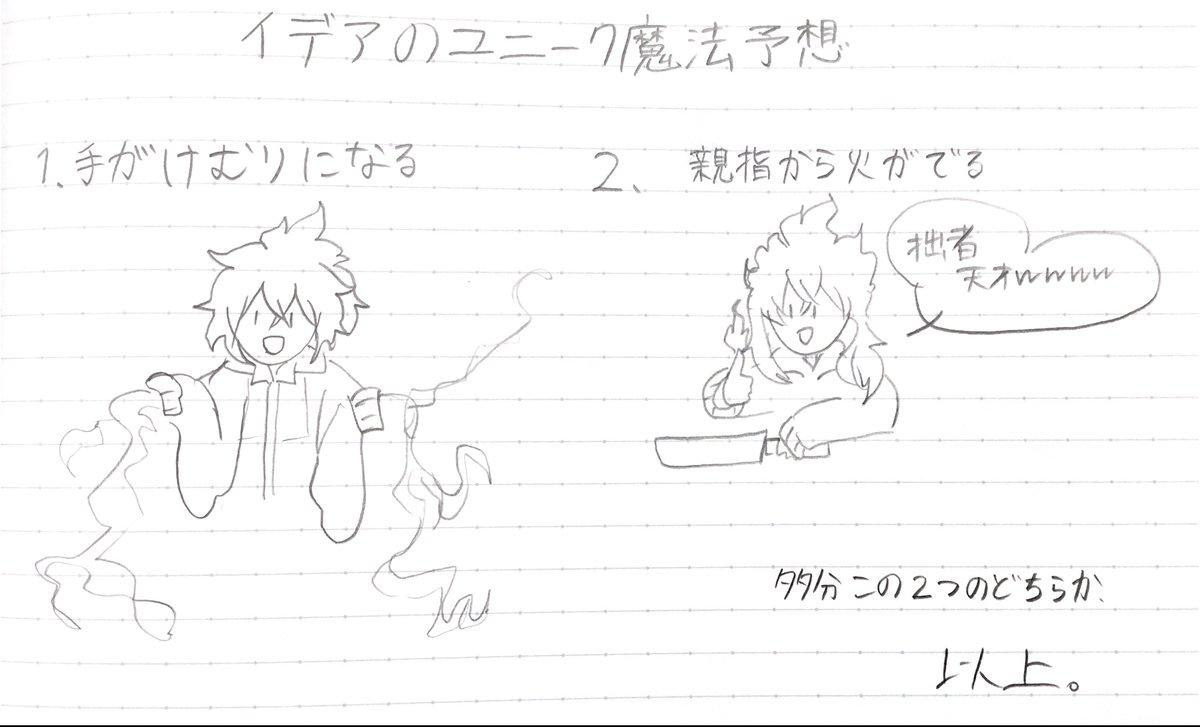 イデアのユニーク魔法予想
1.手がけむりになる
2、親指から火がでる
拙者
天才wwwww
多分この2つのどちらか、
以上。